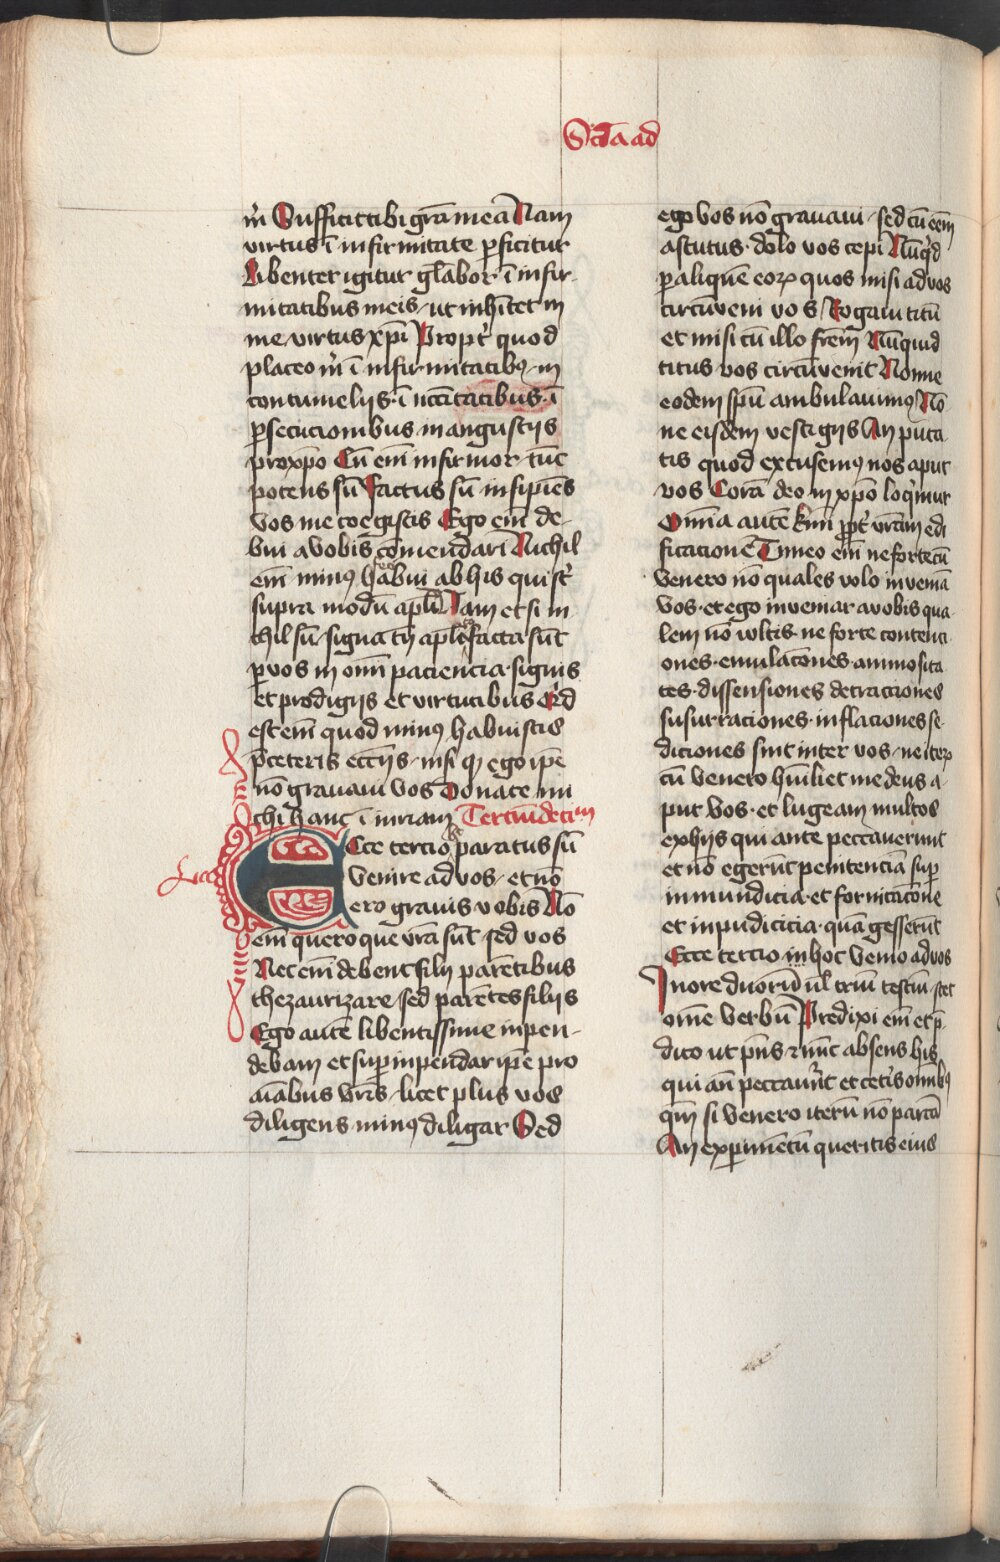 Scd̄a ad
m̄ Sufficit tibi grā mea Nam
virtus ī infirmitate ꝑficitur
Libenter igitur gl̄abor ī infir-
mitatibus meis ut inhītet in
me virtus xp̄i Propt̕ quod
placeo m̄ ī infirmitatibꝯ in
contumelijs ī nccītatibus ī
ꝑsecucionibus in angustijs
pro xp̄o Cū em̄ infirmor tūc
potens sū Factus sū insipiēs
vos me coegistis Ego em̄ de-
bui a vobis comendari Nichil
em̄ minꝯ habui ab his qui st̄
supra modū apl̄i Nam et si ni
chil sū signa tn̄ apl̄s facta sūt
ꝑ vos in om̄i paciencia signis
et prodigijs et virtutibus Qͥd
est em̄ quod minꝯ habuistis
p̄ ceteris eccl̄ijs nisi qꝫ ego ip̄e
nō grauaui vos Donate mi
chi hanc ī iuriam Terciūdecim
Ecce tercio hͦ paratus sū
venire ad vos et nō
ero grauis vobis Nō
em̄ quero que vrā sūt sed vos
Nec em̄ debent filij parētibus
thezaurizare sed parētes filijs
Ego autē libentissime inpen-
dā et suꝑinpendar ip̄e pro
aīabus vrīs licet plus vos
diligens minꝯ diligar Sed
ego vos nō grauaui sed cū eēm
astutus dolo vos cepi Nūqͥd
ꝑ aliquē eoꝝ quos misi ad vos
circūveni vos Rogaui titū
et misi cū illo frēm Nūquid
titus vos circūvenit Nonne
eodem sp̄u ambulauimꝯ Nō
ne eisdem vestigijs An puta
tis quod excusemꝯ nos aput
vos Corā deo in xp̄o loqͥmur
Om̄ia autē kmī ꝓpt̕ vrām edi
ficationē Timeo em̄ ne forte cū
venero nō quales volo inveniā
vos et ego inveniar a vobis qua
lem nō wltis ne forte contenci
ones emulacōnes animosita
tes dissensiones detractiones
susurraciones inflaciones se
diciones sint inter vos ne iteꝝ
cū venero hūiliet me deus a
put vos et lugeam multos
ex hijs qui ante peccauerunt
et nō egerūt penitenciā suꝑ
inmundicia et fornicacōne
et inpudicicia quā gesserūt
Ecce tercio in hoc venio ad vos
In ore duorū ul̄ triū testiū stet
om̄e verbū Predixi em̄ et p̄
dico ut pn̄s ⁊ nūc absens his
qui an̄ peccauer̄t et cetīs om̄ibꝯ
qm̄ si venero iterū nō parcā
An exꝑimētū queritis eius